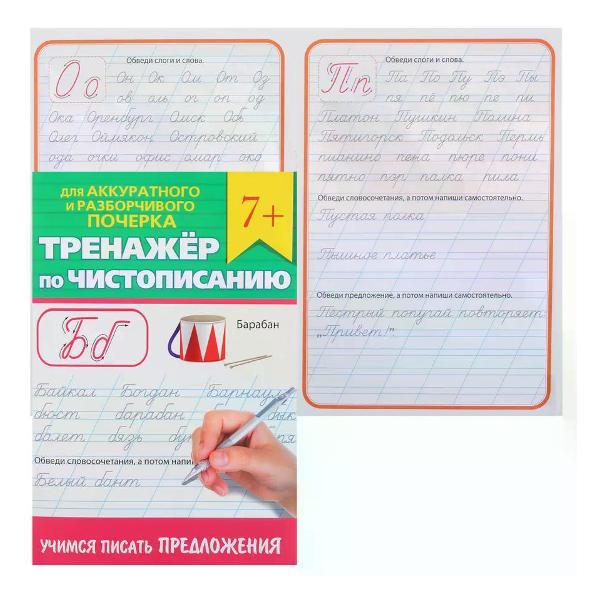 Обведи слоги и слова.
О о
Он Ок Ом От Оз
ов оль ог оп од
Ока Оренбург Омск Обь
Олег Оймякон Островский
ода очки офис омар око
для АККУРАТНОГО
и РАЗБОРЧИВОГО
ПОЧЕРКА
7+
ТРЕНАЖЁР
по ЧИСТОПИСАНИЮ
Б б
Барабан
Байкал Богдан Барнаул
бюст барабан бык
балет бязь
Обведи словосочетания, а потом
Белый бант
УЧИМСЯ ПИСАТЬ ПРЕДЛОЖЕНИЯ
Обведи слоги и слова.
П п
Па По Пу Пэ Пы
пя пё пю пе пи
Платон Пушкин Полина
Пятигорск Подольск Пермь
пианино пена пюре пони
пятно пэр палка пила
Обведи словосочетания, а потом напиши самостоятельно.
Пустая полка
Пышное платье
Обведи предложение, а потом напиши самостоятельно.
Пёстрый попугай повторяет:
„Привет!".